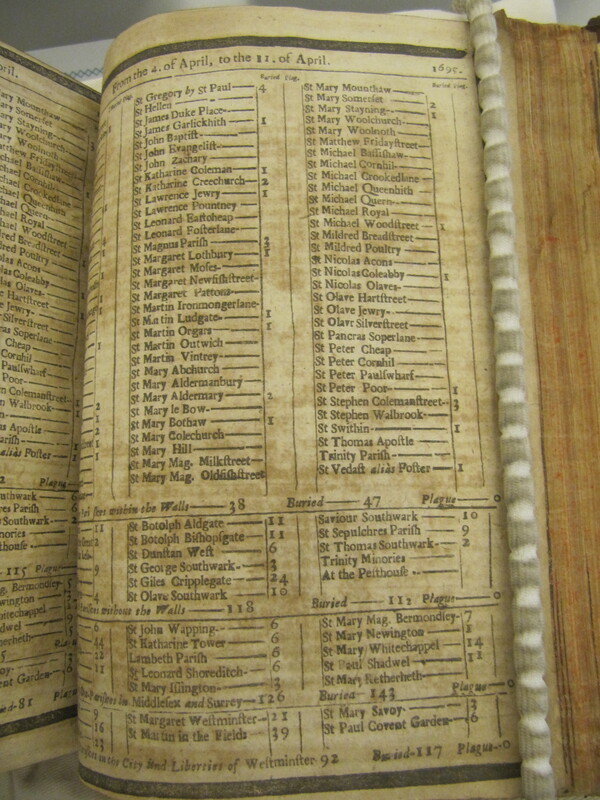 pril.
From the 4. of April, to the 11. of April.
1695.
Buried Plag.
Buried Plag.
St Gregory by St Paul 4
St Hellen
St James Duke Place
St James Garlickhith 1
St John Baptist
St John Evangelist
St John Zachary
St Katharine Coleman 1
St Katharine Creechurch 2
St Lawrence Jewry 1
St Lawrence Pountney
St Leonard Eastcheap
St Leonard Fosterlane
St Magnus Parish
St Margaret Lothbury
St Margaret Moses
St Margaret Newfishstreet
St Margaret Pattons
St Martin Ironmongerlane
St Martin Ludgate 1
St Martin Orgars 1
St Martin Outwich
St Martin Vintrey
St Mary Abchurch
St Mary Aldermanbury
St Mary Aldermary 2
St Mary le Bow
St Mary Bothaw 1
St Mary Colechurch
St Mary Hill
St Mary Mag. Milkstreet
St Mary Mag. Oldfishstreet
St Mary Mounthaw
St Mary Somerset 2
St Mary Stayning 1
St Mary Woolchurch
St Mary Woolnoth
St Matthew Fridaystreet
St Michael Bassishaw
St Michael Cornhil
St Michael Crookedlane
St Michael Queenhith
St Michael Quern
St Michael Royal
St Michael Woodstreet 1
St Mildred Breadstreet
St Mildred Poultry
St Nicolas Acons
St Nicolas Coleabby 1
St Nicolas Olaves
St Olave Hartstreet
St Olave Jewry
St Olave Silverstreet
St Pancras Soperlane
St Peter Cheap
St Peter Cornhil
St Peter Paulswharf
St Peter Poor 1
St Stephen Colemanstreet 3
St Stephen Walbrook
St Swithin 1
St Thomas Apostle
Trinity Parish
St Vedast alias Foster 1
Parishes within the Walls 38 Buried 47 Plague 0
St Botolph Aldgate 11
St Botolph Bishopsgate 11
St Dunstan West 6
St George Southwark 3
St Giles Cripplegate 24
St Olave Southwark 10
Saviour Southwark 10
St Sepulchres Parish 9
St Thomas Southwark 2
Trinity Minories
At the Pesthouse
Parishes without the Walls 118 Buried 112 Plague 0
St John Wapping 6
St Katharine Tower 6
Lambeth Parish 6
St Leonard Shoreditch 6
St Mary Islington 3
St Mary Mag. Bermondsey 7
St Mary Newington 1
St Mary Whitechappel 14
St Paul Shadwel 11
St Mary Retherheth
Parishes in Middlesex and Surrey 126 Buried 143 Plague 0
St Margaret Westminster 21
St Martin in the Fields 39
St Mary Savoy 3
St Paul Covent Garden 6
Parishes in the City and Liberties of Westminster 92 Buried 117 Plague 0